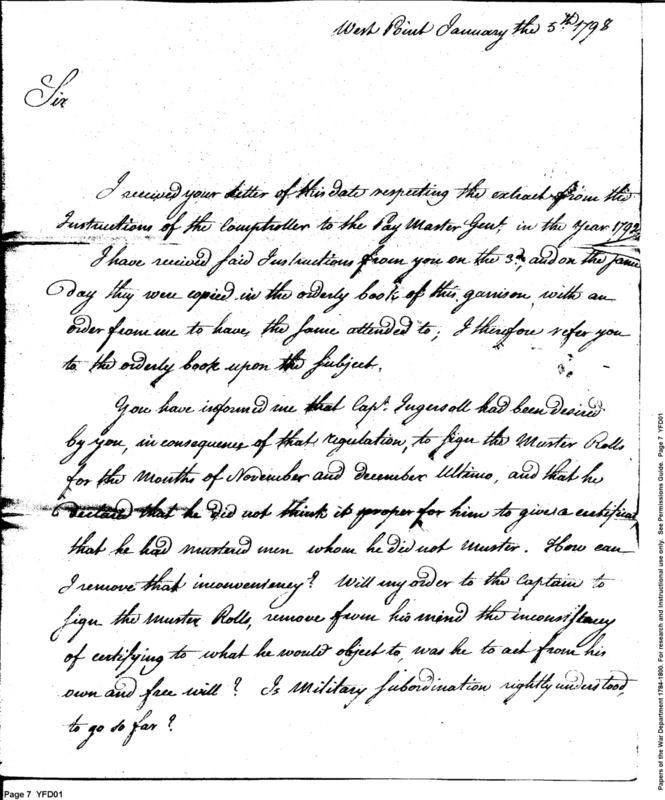 West Point January the 5th. 1798
Sir
I received your Letter of this date respecting the extract from the
Instructions of the Comptroller to the Pay Master Genl. in the Year 1792
I have received said Instructions from you on the 3d. and on the same
day they were copied in the orderly book of this garrison, with an
order from me to have, the same attended to; I therefore refer you
to the orderly book upon the subject.
You have informed me that Capt. Ingersoll had been desired
by you, in consequence of that regulation, to sign the Muster Rolls
for the Months of November and december Ultimo, and that he
declared that he did not think it proper for him to give a certificat,
that he had mustered men whom he did not muster. How can
I remove that inconveniency? Will my order to the Captain to
sign the Muster Rolls, remove from his mind the inconsistency
of certifying to what he would object to, was he to act from his
own and free will? Is Military subordination rightly understood,
to go so far?
Page 7 YFD01
Papers of the War Department 1784-1800. For research and instructional use only. See Permissions Guide. Page 7 YFD01